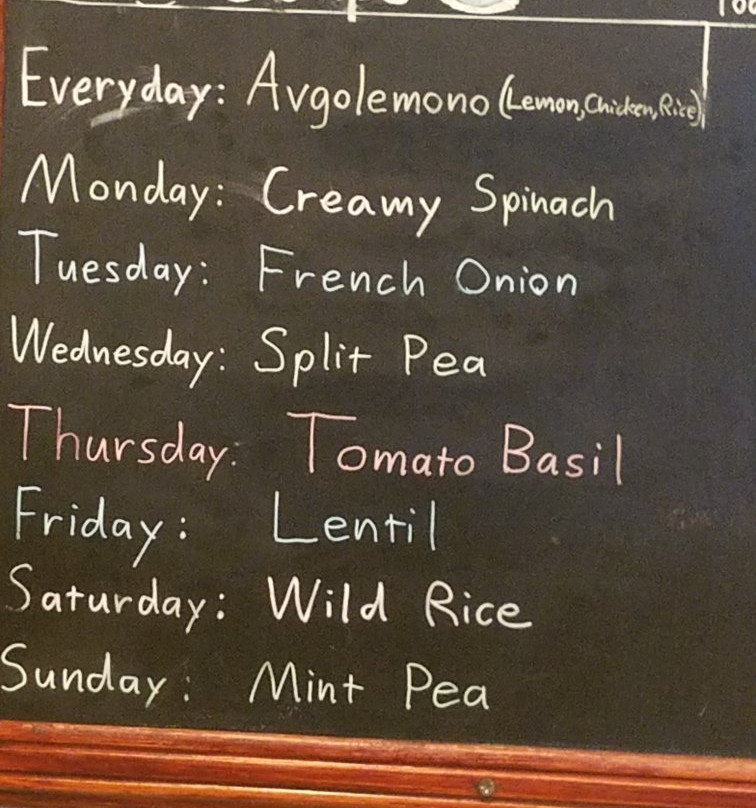 Everyday: Avgolemono (Lemon, Chicken, Rice)
Monday: Creamy Spinach
Tuesday: French Onion
Wednesday: Split Pea
Thursday: Tomato Basil
Friday: Lentil
Saturday: Wild Rice
Sunday: Mint Pea